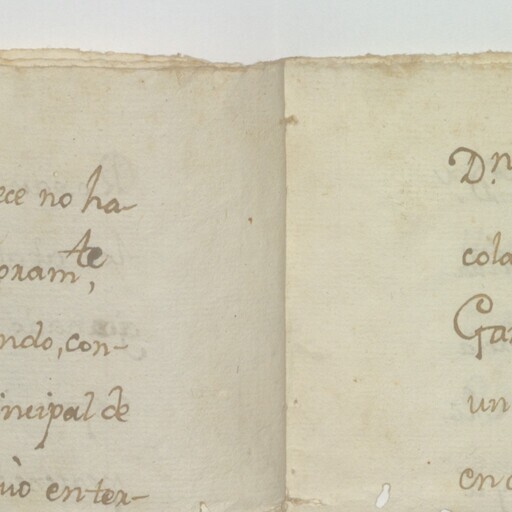 ece no ha-
oram.te,
ndo, con-
incipal de
uò en ter-
D.n
cola
Gar
un
en